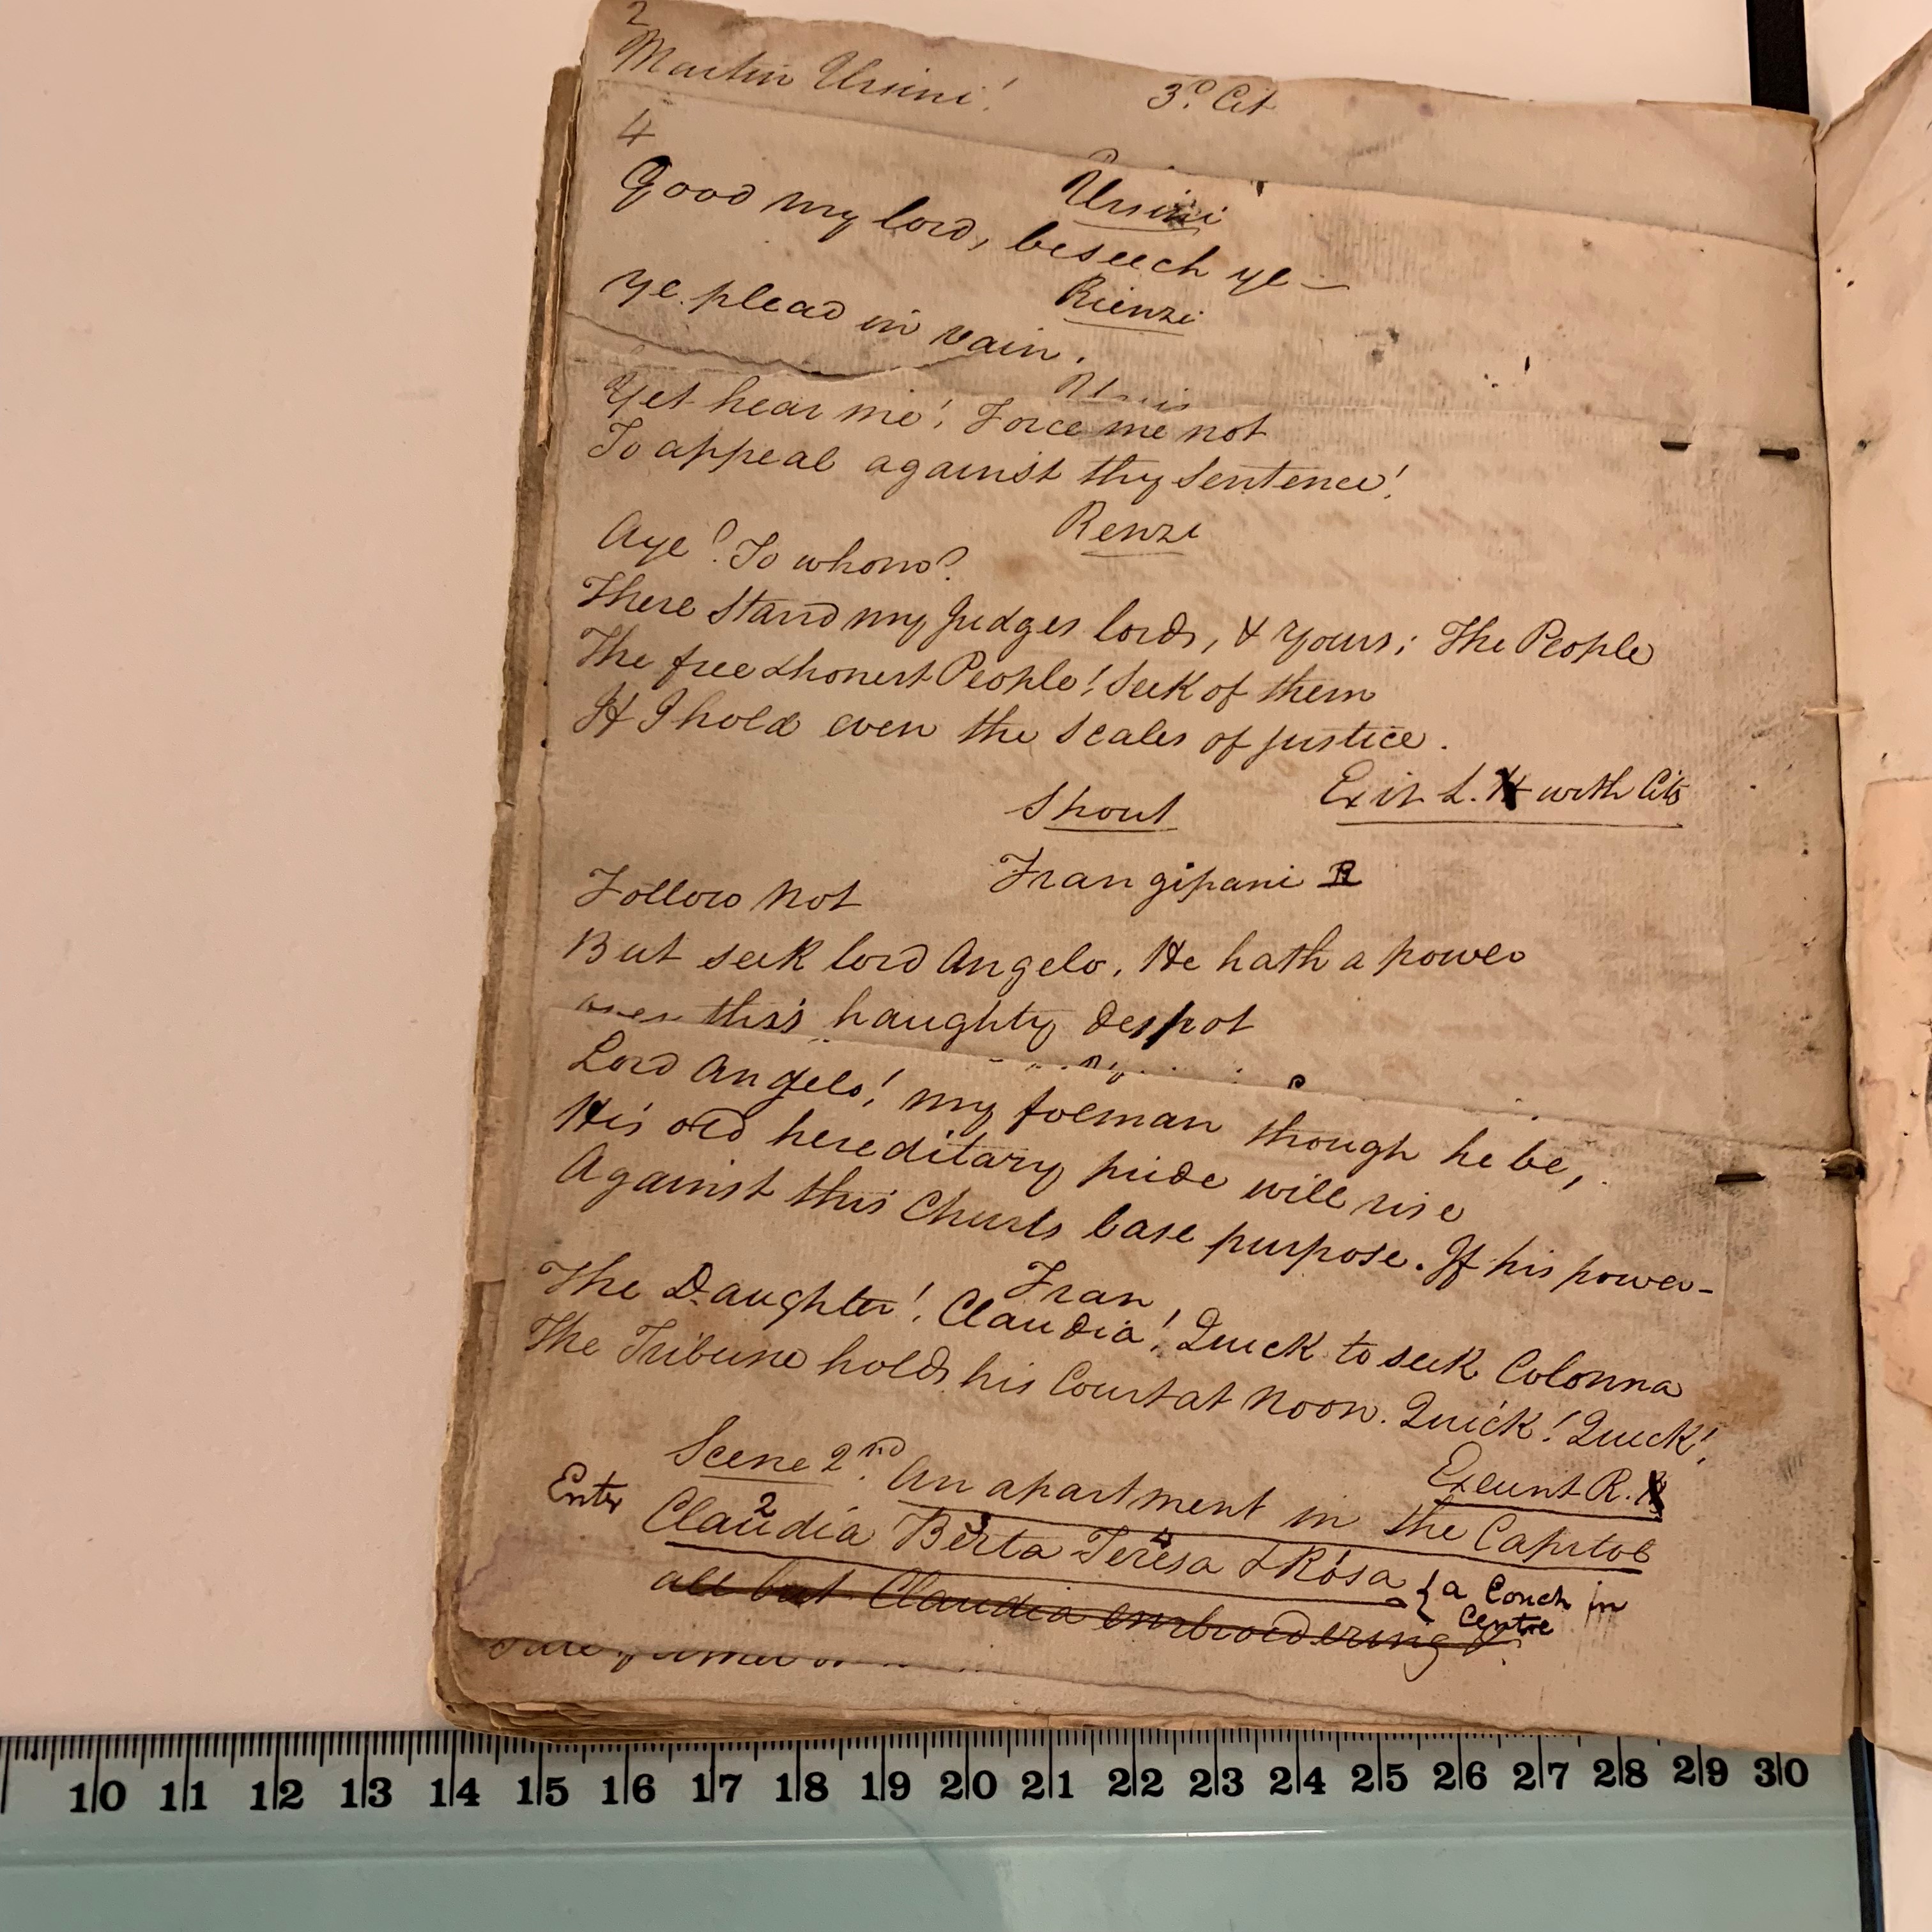 2
3.d Cit
Martin Ursini!
4
Ursini
Good my lord, beseech ye—
Rienzi
Ye plead in vain.
Yet hear me! Force me not
To appeal against thy Sentence!
Renzi
Aye? To whom?
There stand my Judges lords, & yours; The People
The free & honest People! Seek of them
If I hold even the Scales of justice.
Shout
Exit L. H with Cits
Frangipani R
Follow not
But seek lord Angelo. He hath a power
over this haughty despot
Lord Angelo! my foeman though he be,
His old hereditary pride will rise
Against this Churls base purpose. If his power—
Fran
The Daughter! Claudia! Quick to seek Colonna
The Tribune holds his Court at Noon. Quick! Quick!
Exeunt R.
Scene 2nd. An apartment in the Capitol
Enter
2 3 4 1
Claudia Berta Teresa & Rosa { a Couch in
Centre
all but Claudia embroidering
10 11 12 13 14 15 16 17 18 19 20 21 22 23 24 25 26 27 28 29 30